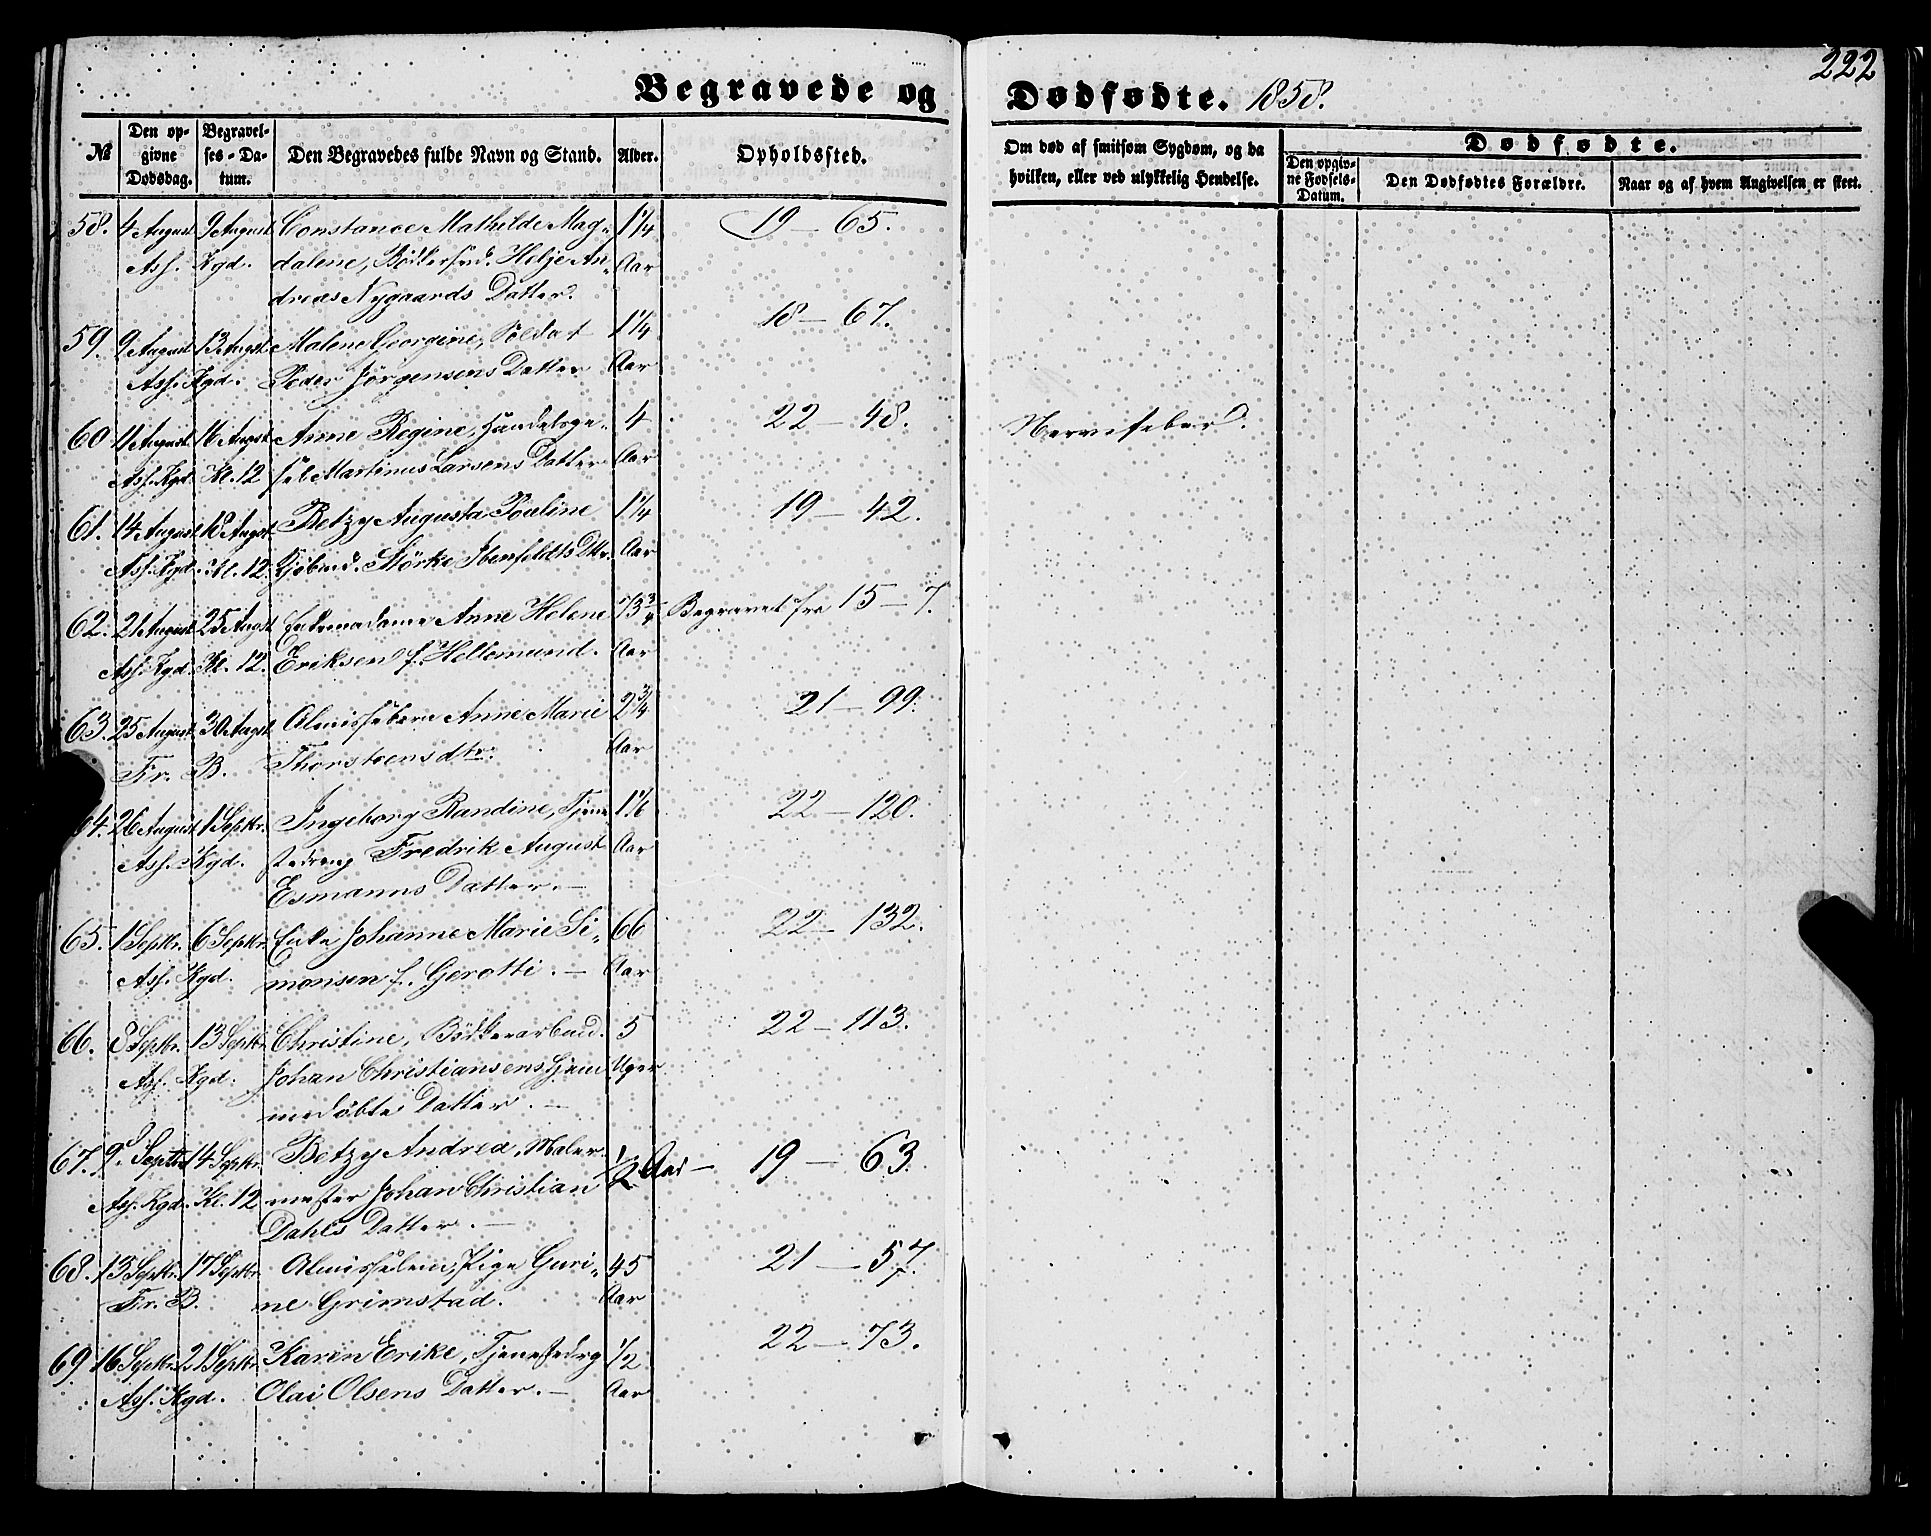 222
Begravede og Dødfødte. 1858.
№ | Den opgivne Dødsdag. | Begravelses-Datum. | Den Begravedes fulde Navn og Stand. | Alder. | Opholdssted. | Om død af smitsom Sygdom, og da hvilken, eller ved ulykkelig Hendelse. | Dødfødte.
Den opgivne Fødsels-Datum. | Den Dødfødtes Forældre. | Naar og af hvem Angivelsen er skeet.
58. 4 August 9 August Constance Mathilde Mag- 1¼ 19 — 65.
Ass. Kgd. dalene, Bödkersvd. Helje An- Aar
dreas Nygaards Datter.
59. 9 August 13 Augst. Malene Georgine, Soldat 1¼ 18 — 67.
Ass. Kgd. Peder Jörgensens Datter Aar
60 11 August 16 Augst. Anne Regine, Handelsge- 4 22 — 48. Nervefeber.
Ass. Kgd. Kl. 12 sel Martinus Larsens Datter Aar
61. 14 August 18 Augst. Betzy Augusta Pauline 1¼ 19 — 42.
Ass. Kgd. Kl. 12. Kjöbmd. Störke Ibenfeldts Dtr. Aar
62. 21 August 25 Augst. Enkemadame Anne Helene 73¾ Begravet fra 15 — 7.
Ass. Kgd. Kl. 12. Eriksen f. Hellemund. Aar
63. 25 August 30 Augst. Anne Marie 2¾ 21 — 99.
Fr. B. Thorstensdtr. Aar
64. 26 August 1 Septbr. Ingeborg Randine, Tjene- 1⅙ 22 — 120.
Ass. Kgd. stedreng Fredrik August Aar
Esmanns Datter. —
65. 1 Septbr. 6 Septbr. Enke Johanne Marie Si- 66 22 — 132.
Ass. Kgd. monsen f. Gerotti. — Aar
66. 8 Septbr. 13 Septbr. Christine, Bödkerarbeid. 5 22 — 113.
Ass. Kgd. Johan Christiansens hjem- Uger
medöbte Datter. —
67. 9. Septbr. 14 Septbr. Betzy Andrea, Maler- ½ Aar — 19 — 63.
Ass. Kgd. Kl. 12 mester Johan Christian
Dahls Datter. —
68. 13 Septbr. 17 Septbr. Almisselem, Pige Guri- 45 21 — 57.
Fr. B. ne Grimstad. Aar
69 16 Septbr. 21 Septbr. Karen Erike, Tjenestedrg ½ 22 — 73.
Ass. Kgd. Olai Olsens Datter. — Aar